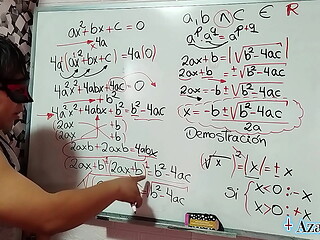 ax²+bx+c=0
4a
4a(ax²+bx+c)=4a(0)
4a²x²+4abx+4ac=0
+b²
4a²x²+4abx+b²=b²-4ac
(2ax +b)
(2ax +b)
2axb+2axb=4abx
(2ax+b)(2ax+b)=b²-4ac
b²-4ac
a,b ∧ c ∈ R
aᵖaᑫ=aᵖ⁺ᑫ
2ax+b=|√b²-4ac|
2ax+b=±√b²-4ac
x=-b±√b²-4ac
2a
Demostración
(√x)²=|x|=±x
Si
x<0:-x
x>0:+x
+ Aza